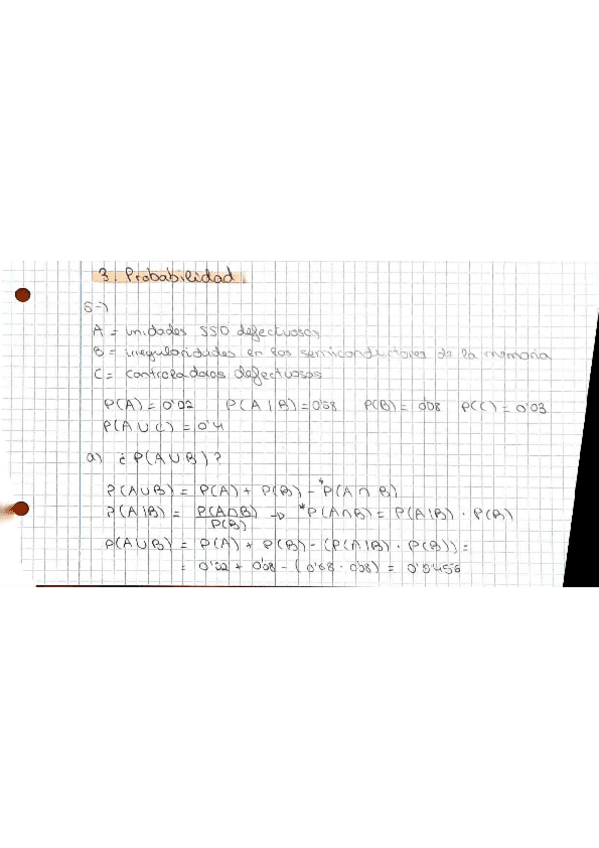 3. Probabilidad.
5-)
A = unidades SSD defectuosas
B = irregularidades en los semiconductores de la memoria
C = controladores defectuosos
P(A) = 0'02 P(A|B) = 0'68 P(B) = 0'08 P(C) = 0'03
P(A ∪ C) = 0'4
a) ¿P(A∪B)?
P(A∪B) = P(A) + P(B) - *P(A ∩ B)
P(A|B) = P(A∩B) / P(B) → *P(A∩B) = P(A|B) · P(B)
P(A∪B) = P(A) + P(B) - (P(A|B) · P(B)) =
= 0'02 + 0'08 - (0'68 · 0'08) = 0'0456